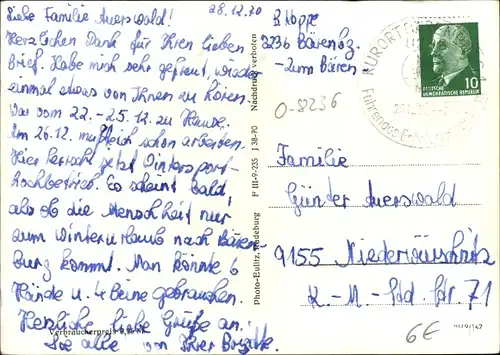 28.12.70
Liebe Familie Auerswald!
Herzlichen Dank für Ihren lieben
Brief. Habe mich sehr gefreut, wieder
einmal etwas von Ihnen zu hören.
War vom 22.-25.12. zu Hause.
Am 26.12. mußte ich schon arbeiten.
Hier herrscht jetzt Wintersport-
hochbetrieb. Es scheint bald,
als ob die Menschheit nur
zum Winterurlaub nach Bären-
burg kommt. Man könnte 6
Hände u. 4 Beine gebrauchen.
Herzliche liebe Grüße an
Sie alle von Ihrer
Verbraucherpreis
Photo-Eulitz, Radeburg P III-9-235 J 38-70 Nachdruck verboten
B. Hoppe
8236 Bärenbg.
-Zum Bären-
0-8236
KURORT
Führendes
DEUTSCHE
DEMOKRATISCHE REPUBLIK
10
Familie
Günter Auerswald
9155 Niederwürschnitz
K.-M.-Str. 71
6E